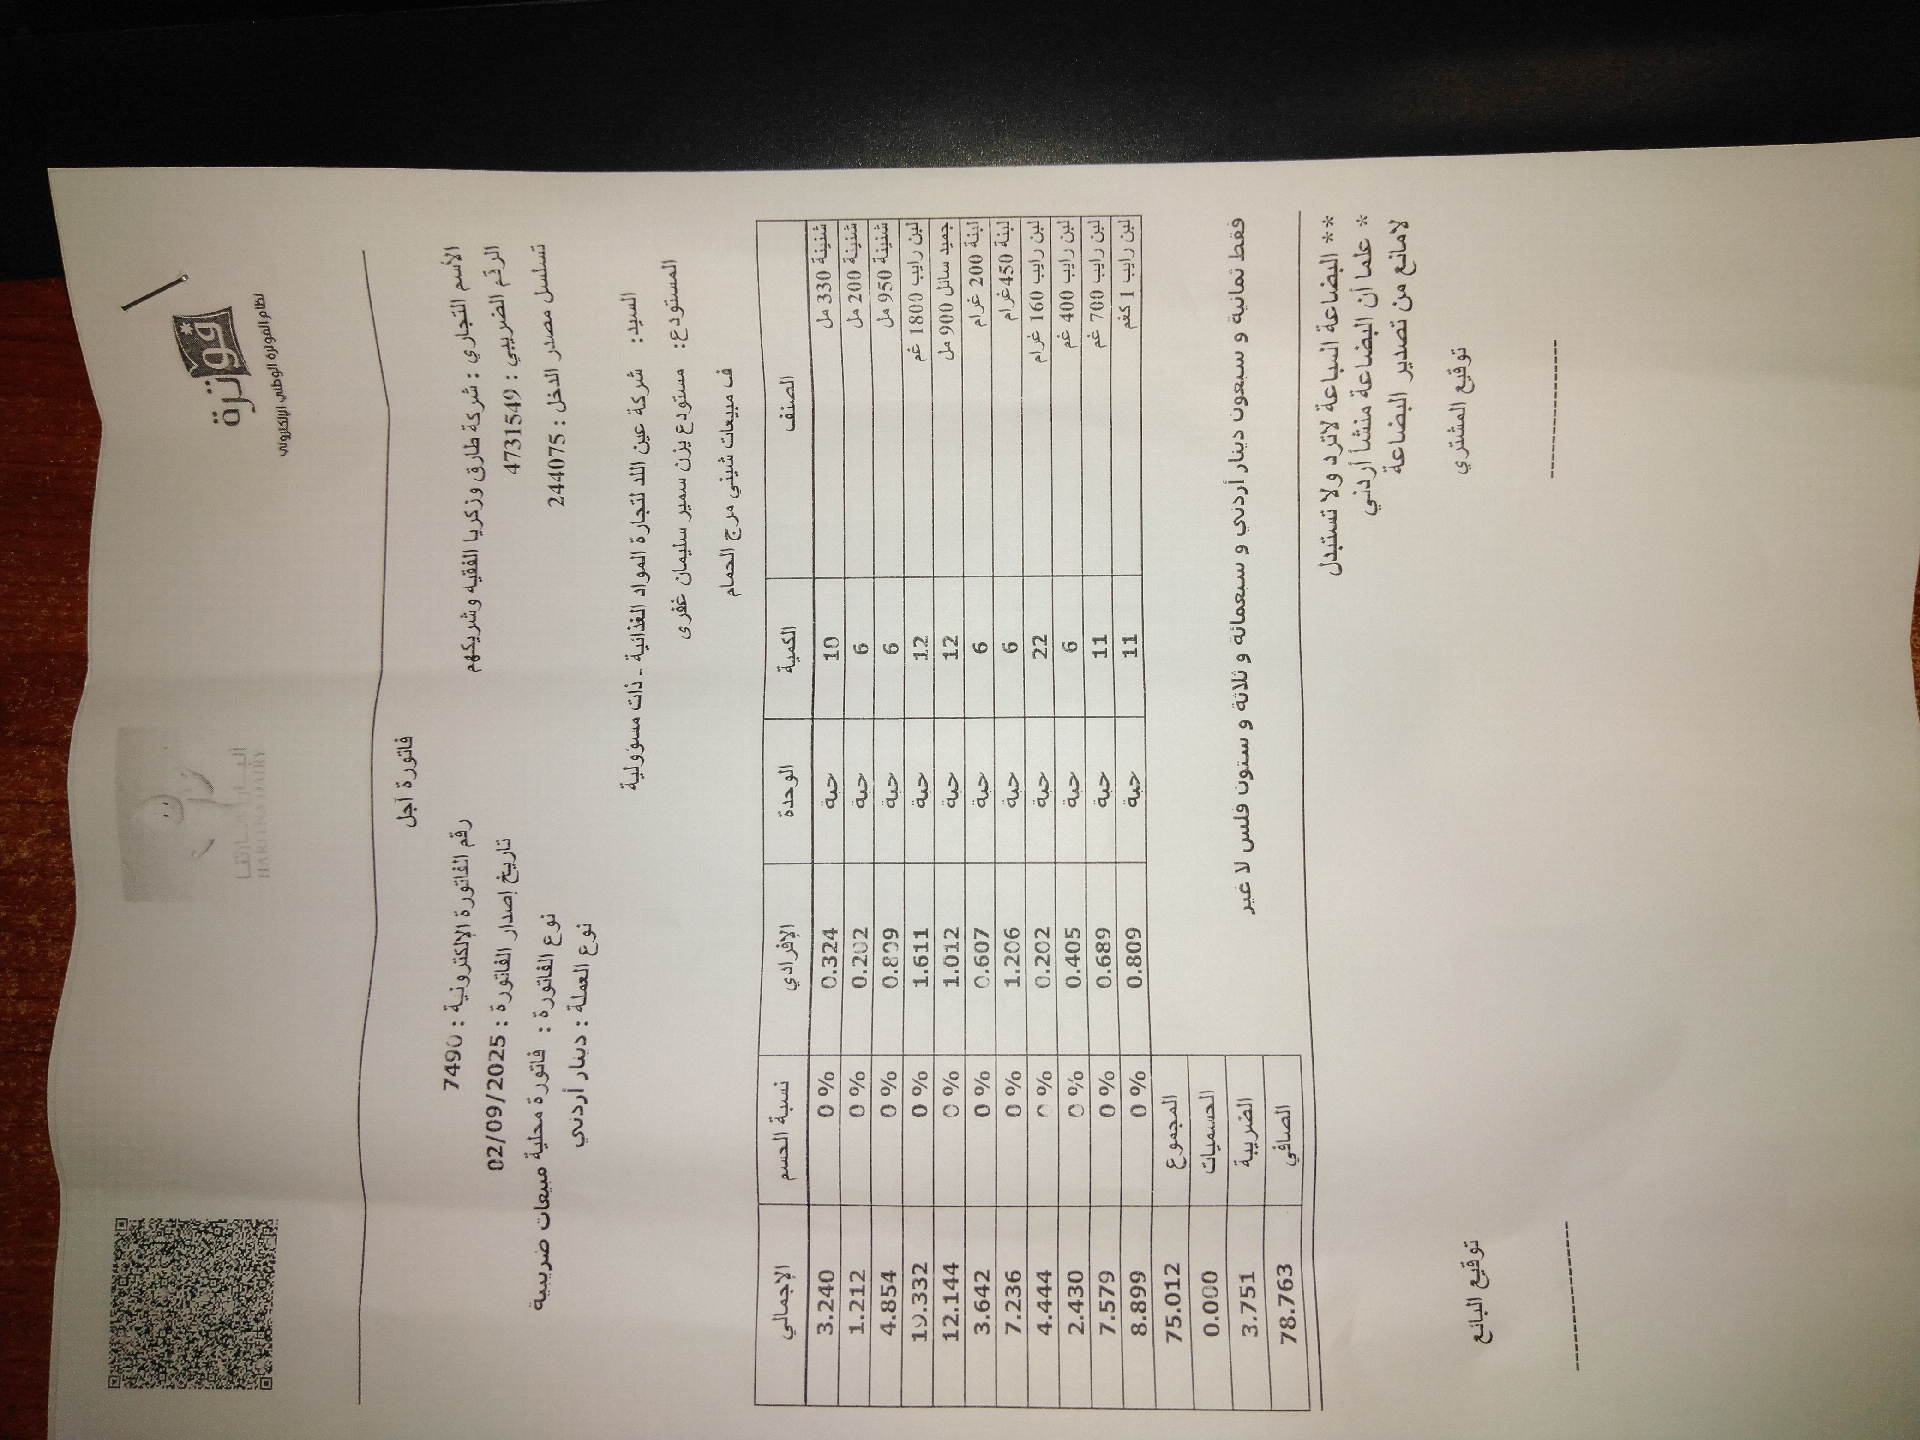 فوترة
نظام الفوترة الوطني الإلكتروني
ألبان هارتنا
HARTNA DAIRY
فاتورة آجل
الأسم التجاري : شركة طارق وزكريا الفقيه وشريكهم
رقم الفاتورة الإلكترونية : 7490
الرقم الضريبي : 4731549
تاريخ إصدار الفاتورة : 02/09/2025
تسلسل مصدر الدخل : 244075
نوع الفاتورة : فاتورة محلية مبيعات ضريبية
نوع العملة : دينار أردني
السيد: شركة عين اللد لتجارة المواد الغذائية ـ ذات مسؤولية
المستودع: مستودع يزن سمير سليمان غفري
ف مبيعات شيني مرج الحمام
الصنف الكمية الوحدة الإفرادي نسبة الحسم الإجمالي
شنينة 330 مل 10 حبة 0.324 0 % 3.240
شنينة 200 مل 6 حبة 0.202 0 % 1.212
شنينة 950 مل 6 حبة 0.809 0 % 4.854
لبن رايب 1800 غم 12 حبة 1.611 0 % 19.332
جميد سائل 900 مل 12 حبة 1.012 0 % 12.144
لبنة 200 غرام 6 حبة 0.607 0 % 3.642
لبنة 450غرام 6 حبة 1.206 0 % 7.236
لبن رايب 160 غرام 22 حبة 0.202 0 % 4.444
لبن رايب 400 غم 6 حبة 0.405 0 % 2.430
لبن رايب 700 غم 11 حبة 0.689 0 % 7.579
لبن رايب 1 كغم 11 حبة 0.809 0 % 8.899
المجموع 75.012
الحسميات 0.000
الضريبة 3.751
الصافي 78.763
فقط ثمانية و سبعون دينار أردني و سبعمائة و ثلاثة و ستون فلس لا غير
** البضاعة المباعة لاترد ولا تستبدل
* علما أن البضاعة منشأ أردني
لامانع من تصدير البضاعة
توقيع المشتري
توقيع البائع